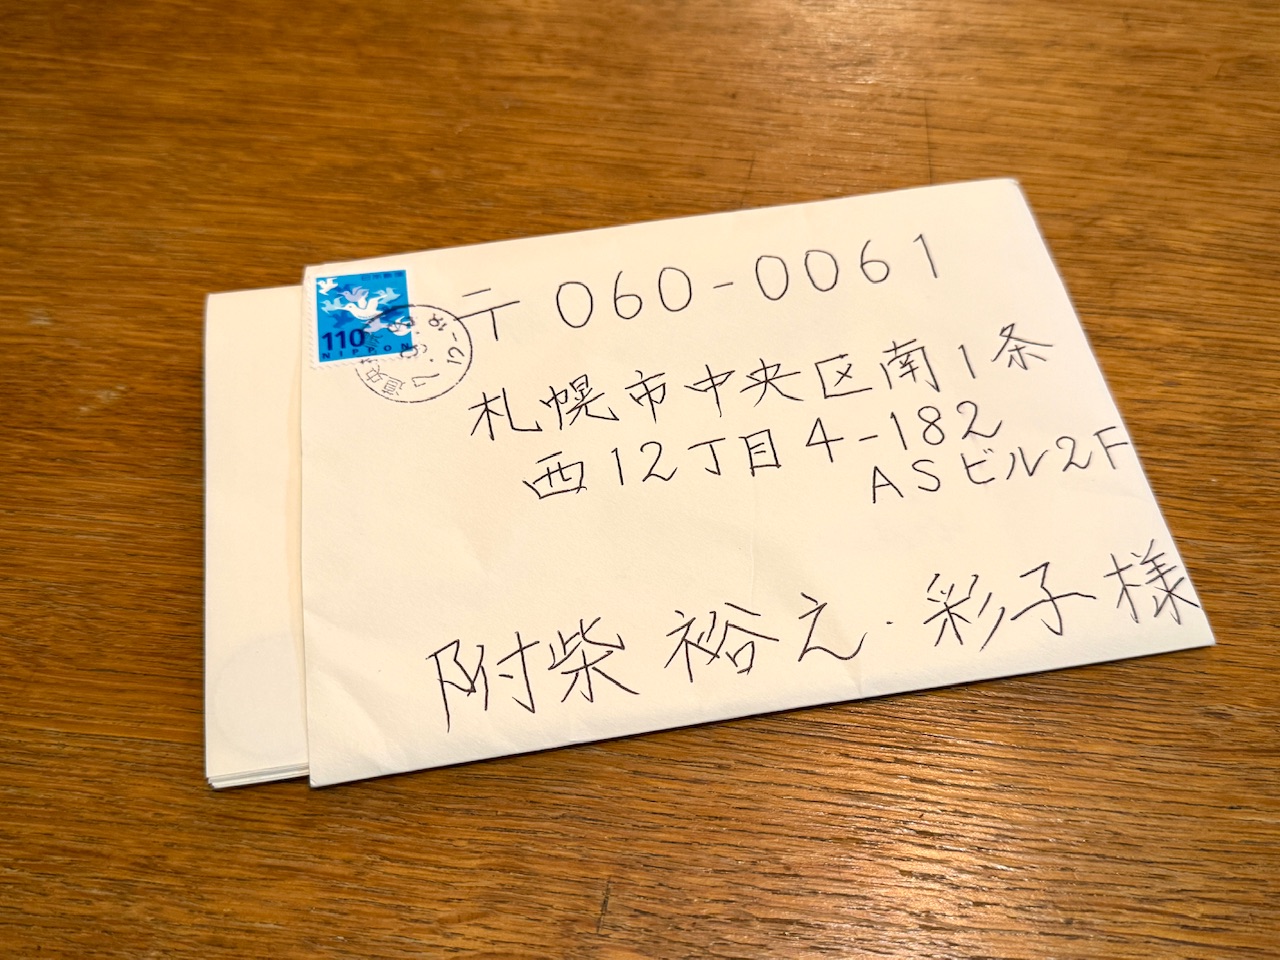 日本郵便
110
NIPPON
〒060-0061
札幌市中央区南1条
西12丁目4-182
ASビル2F
附柴 裕之・彩子様